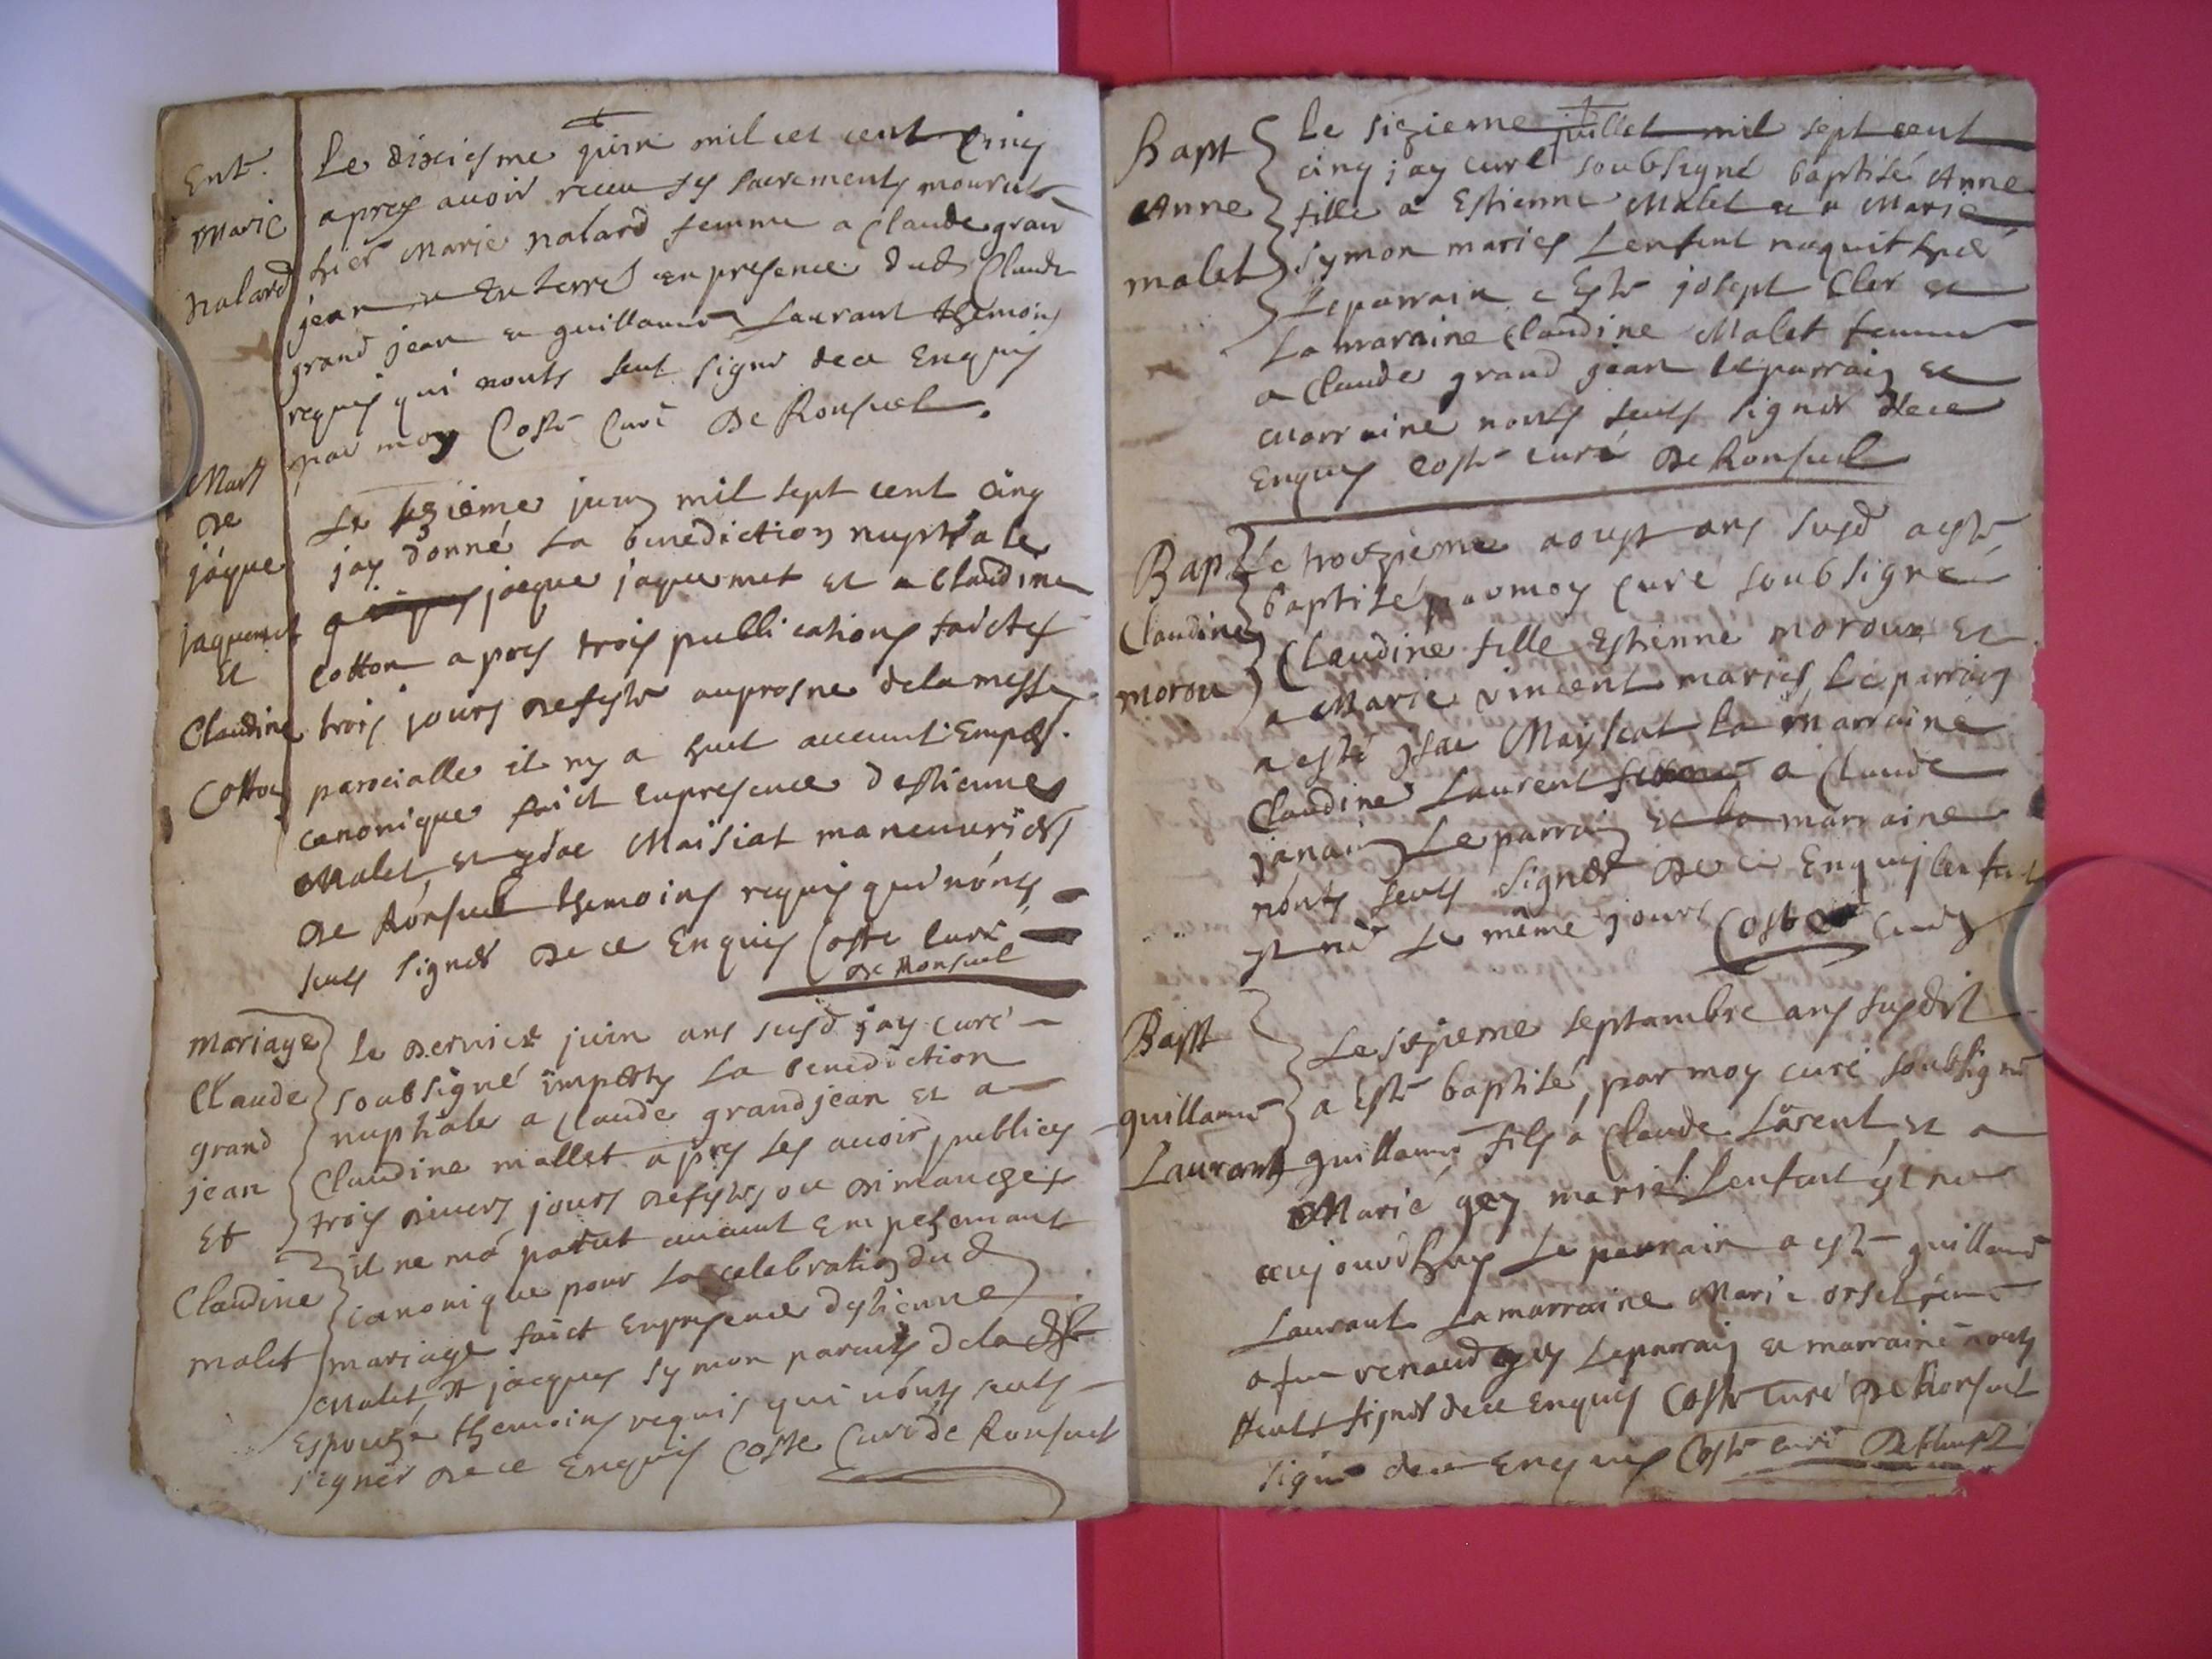 Ent.
Marie
nalard
Le dixiesme juin mil cet cent cinq
apres avoir receu ses sacrements mourut
hier Marie nalard femme a Claude gran
jean enterré en presence dud Claude
grand jean et guillaume Laurant themoins
requis qui nonts seut signer de ce Enquis
par moy Coste Curé De Ronsuel.
Mars
De
jáque
jaquemet
Et
Claudine
Cotton
Le sezième juin mil sept cent cinq
jay donné La benediction nuptiale
a jacque jaquemet et a Claudine
Cotton apres trois publications faictes
trois jours de feste au prosne de la messe
parocialle il ny a heut aucunt Emped.
canonique faict en presence d'estienne
Malet, et ysac Maisiat maneuvriers
De Ronsuel themoins requis qui nónts
seuts signer De ce Enquis Coste Curé
De Ronsuel
mariage
Claude
grand
jean
Et
Claudine
malet
Le Dernier juin ans susd jay curé
soubsigné impartis La benediction
nuptiale a Claude grandjean et a
Claudine mallet apres les avoir publies
trois divers jours de festes ou Dimanches
il ne má parut aucunt empechemant
canonique pour La celebration dud
mariage faict En presence d'estienne
Malet, et jacques symon parents de la de
Espouse themoins requis qui nónts seuts
signer De ce Enquis Coste Curé de Ronsuel
Bapt
Anne
malet
Le sizieme juillet mil sept cent
cinq jay curé soubsigné baptisé Anne
fille a Estienne Malet et a Marie
symon maries L'enfent naquit hier
Le parrain a este josept Cler et
La maraine Claudine Malet femme
a Claude grand jean Le parrain et
marraine nonts seuts signer de ce
Enquis Coste curé De Ronsuel
Bap
Claudine
morou
Le troizieme aoust ans susd a este
baptisé par moy Curé soubsigné
Claudine fille Estienne moroux et
a Marie vincent maries Le parrain
a esté ysac Maysiat La Marraine
Claudine Laurent femme a Claude
janain Le parrain et La marraine
nónts seuts signer De ce Enquis l'enfent
est né Le même jours Coste Curé
Bapt
guillaume
Laurant
Le sizieme septambre ans susdit
a Esté baptisé, par moy curé soubsigné
guillaume fils a Claude Lorent et a
Marie gey mariés L'enfent est né
aujourdhuy Le parrain a esté guillaume
Laurant La marraine Marie orset feme
a feu renaud gey Le parrain et marraine nonts
seuts signer de ce Enquis Coste Curé De Ronsuel
signer de ce Enquis Coste curé